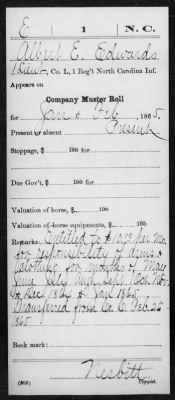 E | 1 | N.C.
Albert E. Edwards
Lieut, Co. L, 1 Reg't North Carolina Inf.
Appears on
Company Muster Roll
for Jan & Feb, 1865.
Present or absent Present
Stoppage, $ 100 for
Due Gov't, $ 100 for
Valuation of horse, $ 100
Valuation of horse equipments, $ 100
Remarks: Entitled to $10.00 per Mo
for responsibility of arms &
clothing for months of May
June July Augt Sept Oct Nov
& Dec 1864 & Jan 1865
Transferred from Co E Feb. 25
1865
Book mark:
Nesbitt
(858) Copyist.